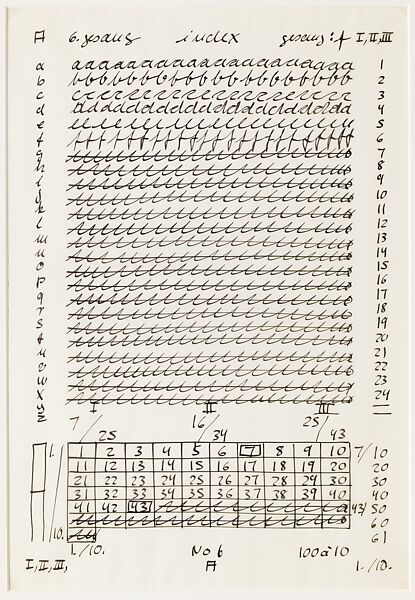 A 6. gesang index gesang: f I, II, III
a aaaaaaaaaaaaaaaaaaaa 1
b bbbbbbbbbbbbbbbbbbbb 2
c cccccccccccccccccc 3
d dddddddddddddddddddd 4
e 5
f 6
g 7
h 8
i 9
j 10
k 11
l 12
m 13
n 14
o 15
p 16
q 17
r 18
s 19
t 20
u 21
v 22
w 23
x 24
y
z
I II III
7/25 16/34 25/43
1 2 3 4 5 6 7 8 9 10 7/10
11 12 13 14 15 16 17 18 19 20 20
21 22 23 24 25 26 27 28 29 30 30
31 32 33 34 35 36 37 38 39 40 40
41 42 43 43/50
60
61
1.
10.
1./10. No 6 100 à 10
I, II, III, A 1./10.